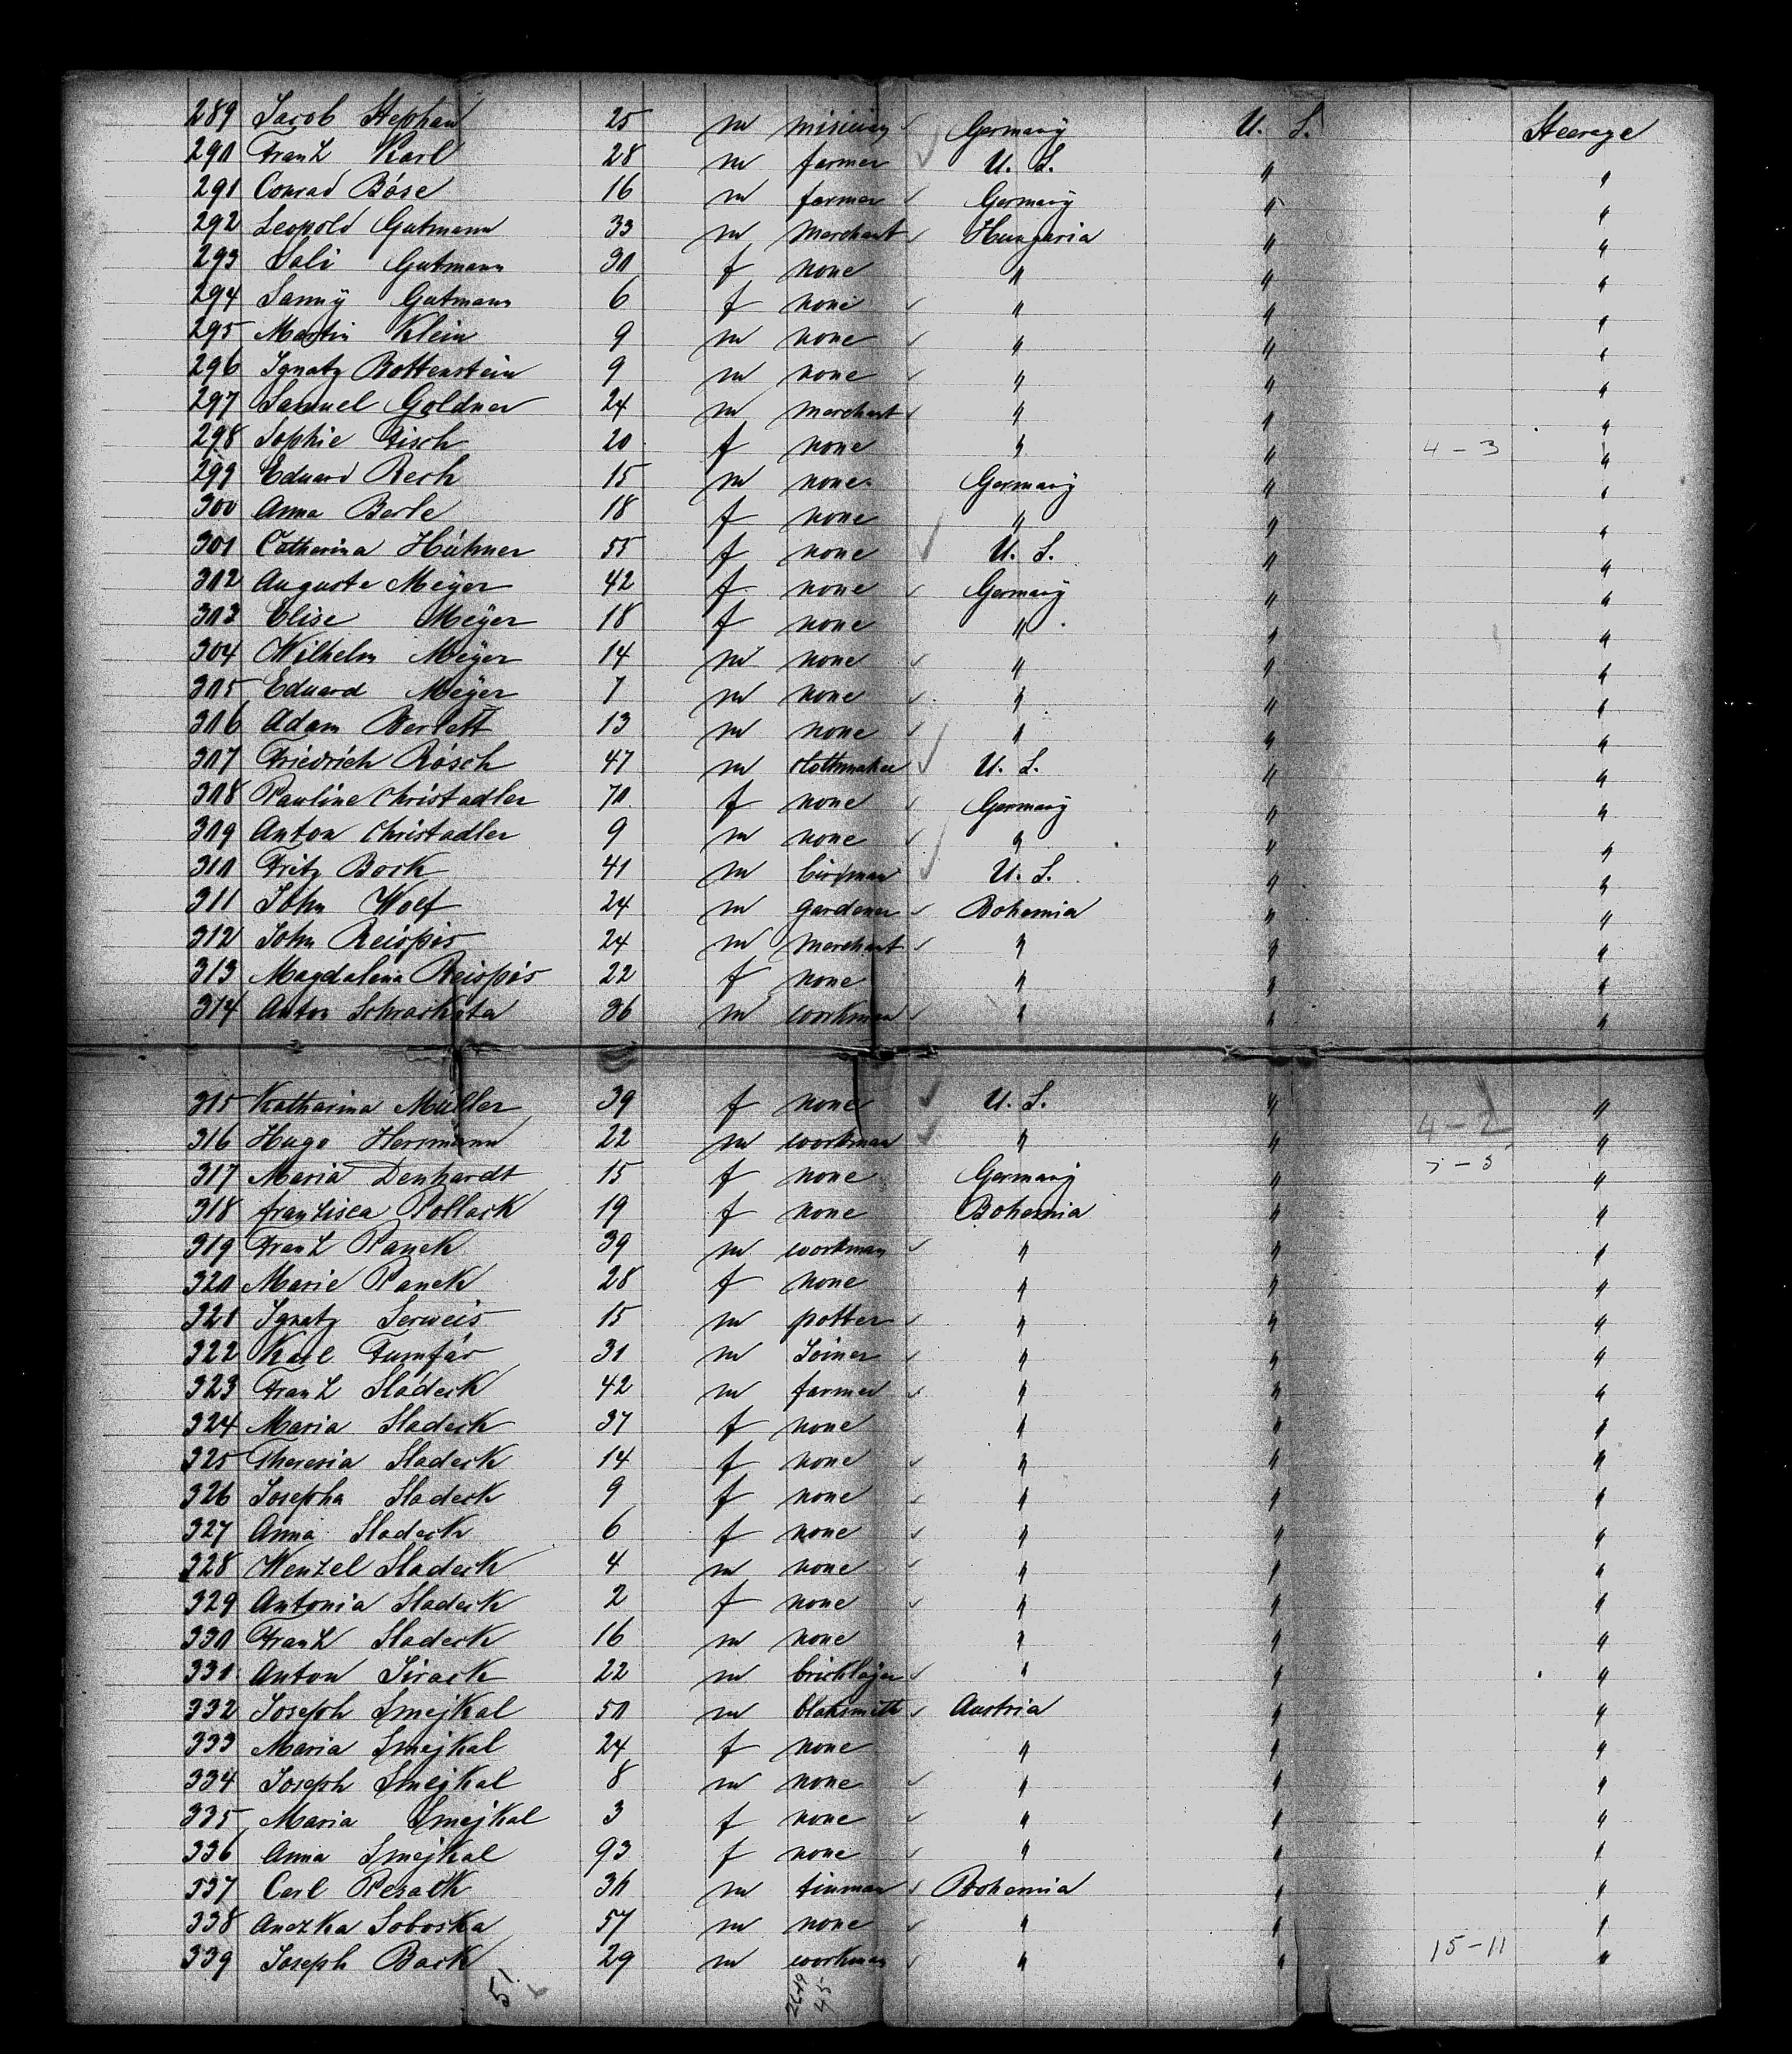 289 Jacob Stephan 25 m Germany U. S. Steerage
290 Franz Karl 28 m farmer U. S. " "
291 Conrad Böse 16 m farmer Germany " "
292 Leopold Gutmann 33 m Merchant Hungaria " "
293 Sali Gutmann 30 f none " " "
294 Sanny Gutmann 6 f none " " "
295 Martin Klein 9 m none " " "
296 Ignatz Bottenstein 9 m none " " "
297 Samuel Goldner 24 m merchant " " "
298 Sophie Fisch 20 f none " " 4-3 "
299 Eduard Rech 15 m none Germany " "
300 Anna Berle 18 f none " " "
301 Catherina Hühner 55 f none U. S. " "
302 Auguste Meÿer 42 f none Germany " "
303 Elise Meÿer 18 f none " " "
304 Wilhelm Meÿer 14 m none " " "
305 Eduard Meÿer 7 m none " " "
306 Adam Berlett 13 m none " " "
307 Friedrich Rösch 47 m U. S. " "
308 Pauline Christadler 70 f none Germany " "
309 Anton Christadler 9 m none " " "
310 Fritz Bock 41 m U. S. " "
311 John Wolf 24 m gardener Bohemia " "
312 John Reispis 24 m merchant " " "
313 Magdalena Reispis 22 f none " " "
314 Anton Schrackota 36 m workman " " "
315 Katharina Müller 39 f none U. S. " 4-2 "
316 Hugo Herrmann 22 m workman " " "
317 Maria Denhardt 15 f none Germany " "
318 Franzisca Pollack 19 f none Bohemia " "
319 Franz Panek 39 m workman " " "
320 Marie Panek 28 f none " " "
321 Ignatz Serweis 15 m potter " " "
322 Karl Tumfár 31 m Joiner " " "
323 Franz Sladeck 42 m farmer " " "
324 Maria Sladeck 37 f none " " "
325 Theresia Sladeck 14 f none " " "
326 Josepha Sladeck 9 f none " " "
327 Anna Sladeck 6 f none " " "
328 Wenzel Sladeck 4 m none " " "
329 Antonia Sladeck 2 f none " " "
330 Franz Sladeck 16 m none " " "
331 Anton Jirack 22 m bricklajer " " "
332 Joseph Smejkal 50 m blaksmith Austria " "
333 Maria Smejkal 24 f none " " "
334 Joseph Smejkal 8 m none " " "
335 Maria Smejkal 3 f none " " "
336 Anna Smejkal 93 f none " " "
337 Carl Pesack 30 m tinman Bohemia " "
338 Anezka Soboska 57 m none " " "
339 Joseph Back 29 m workman " " 15-11 "
51